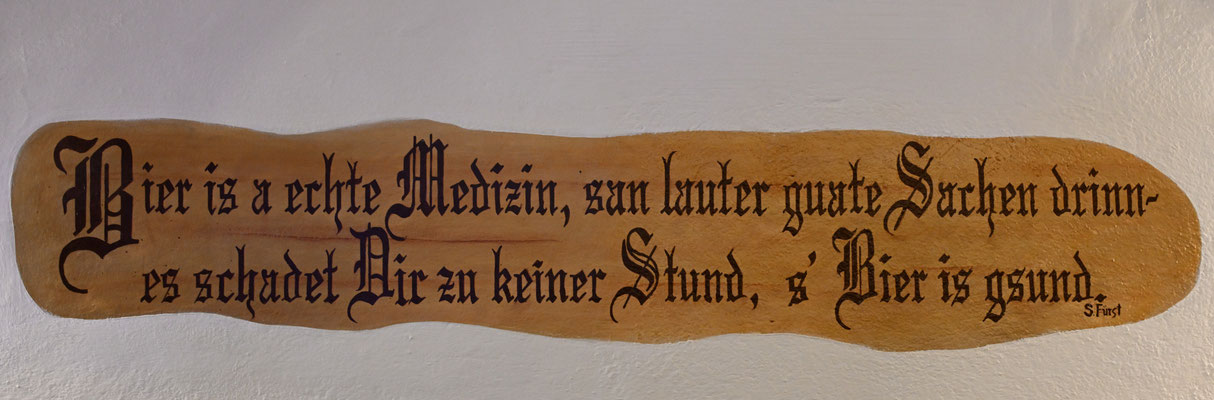 Bier is a echte Medizin, san lauter guate Sachen drinn-
es schadet Dir zu keiner Stund, s' Bier is gsund.
S. Fürst